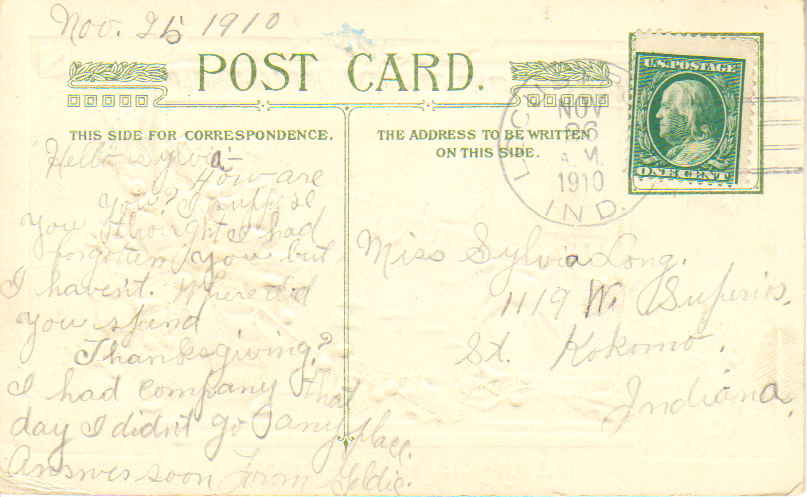 Nov. 25 1910
POST CARD.
THIS SIDE FOR CORRESPONDENCE.
THE ADDRESS TO BE WRITTEN
ON THIS SIDE.
U.S. POSTAGE
ONE CENT
NOV
26
A.M.
1910
IND.
Hello Sylvia-
How are
you? I suppose
you thought I had
forgotten you but
I haven't. Where did
you spend
Thanksgiving?
I had company that
day I didn't go any place.
Answer soon From Goldie.
Miss Sylvia Long.
419 W. Superior.
St. Kokomo.
Indiana.